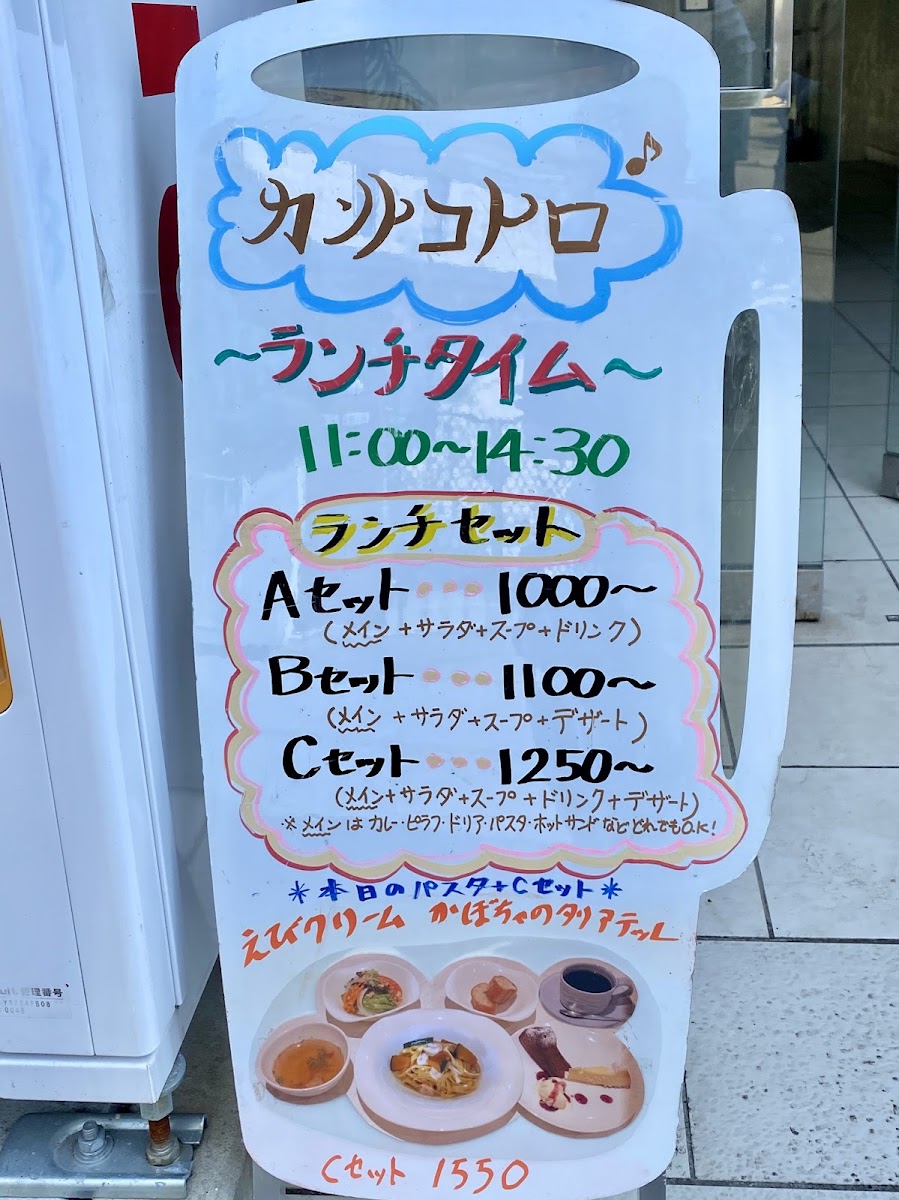 カントコトロ
~ランチタイム~
11:00~14:30
ランチセット
Aセット・・・1000~
(メイン+サラダ+スープ+ドリンク)
Bセット・・・1100~
(メイン+サラダ+スープ+デザート)
Cセット・・・1250~
(メイン+サラダ+スープ+ドリンク+デザート)
※メインはカレー・ピラフ・ドリア・パスタ・ホットサンドなどどれでもO.K!
*本日のパスタ+Cセット*
えびクリーム かぼちゃのタリアテッレ
Cセット 1550
管理番号